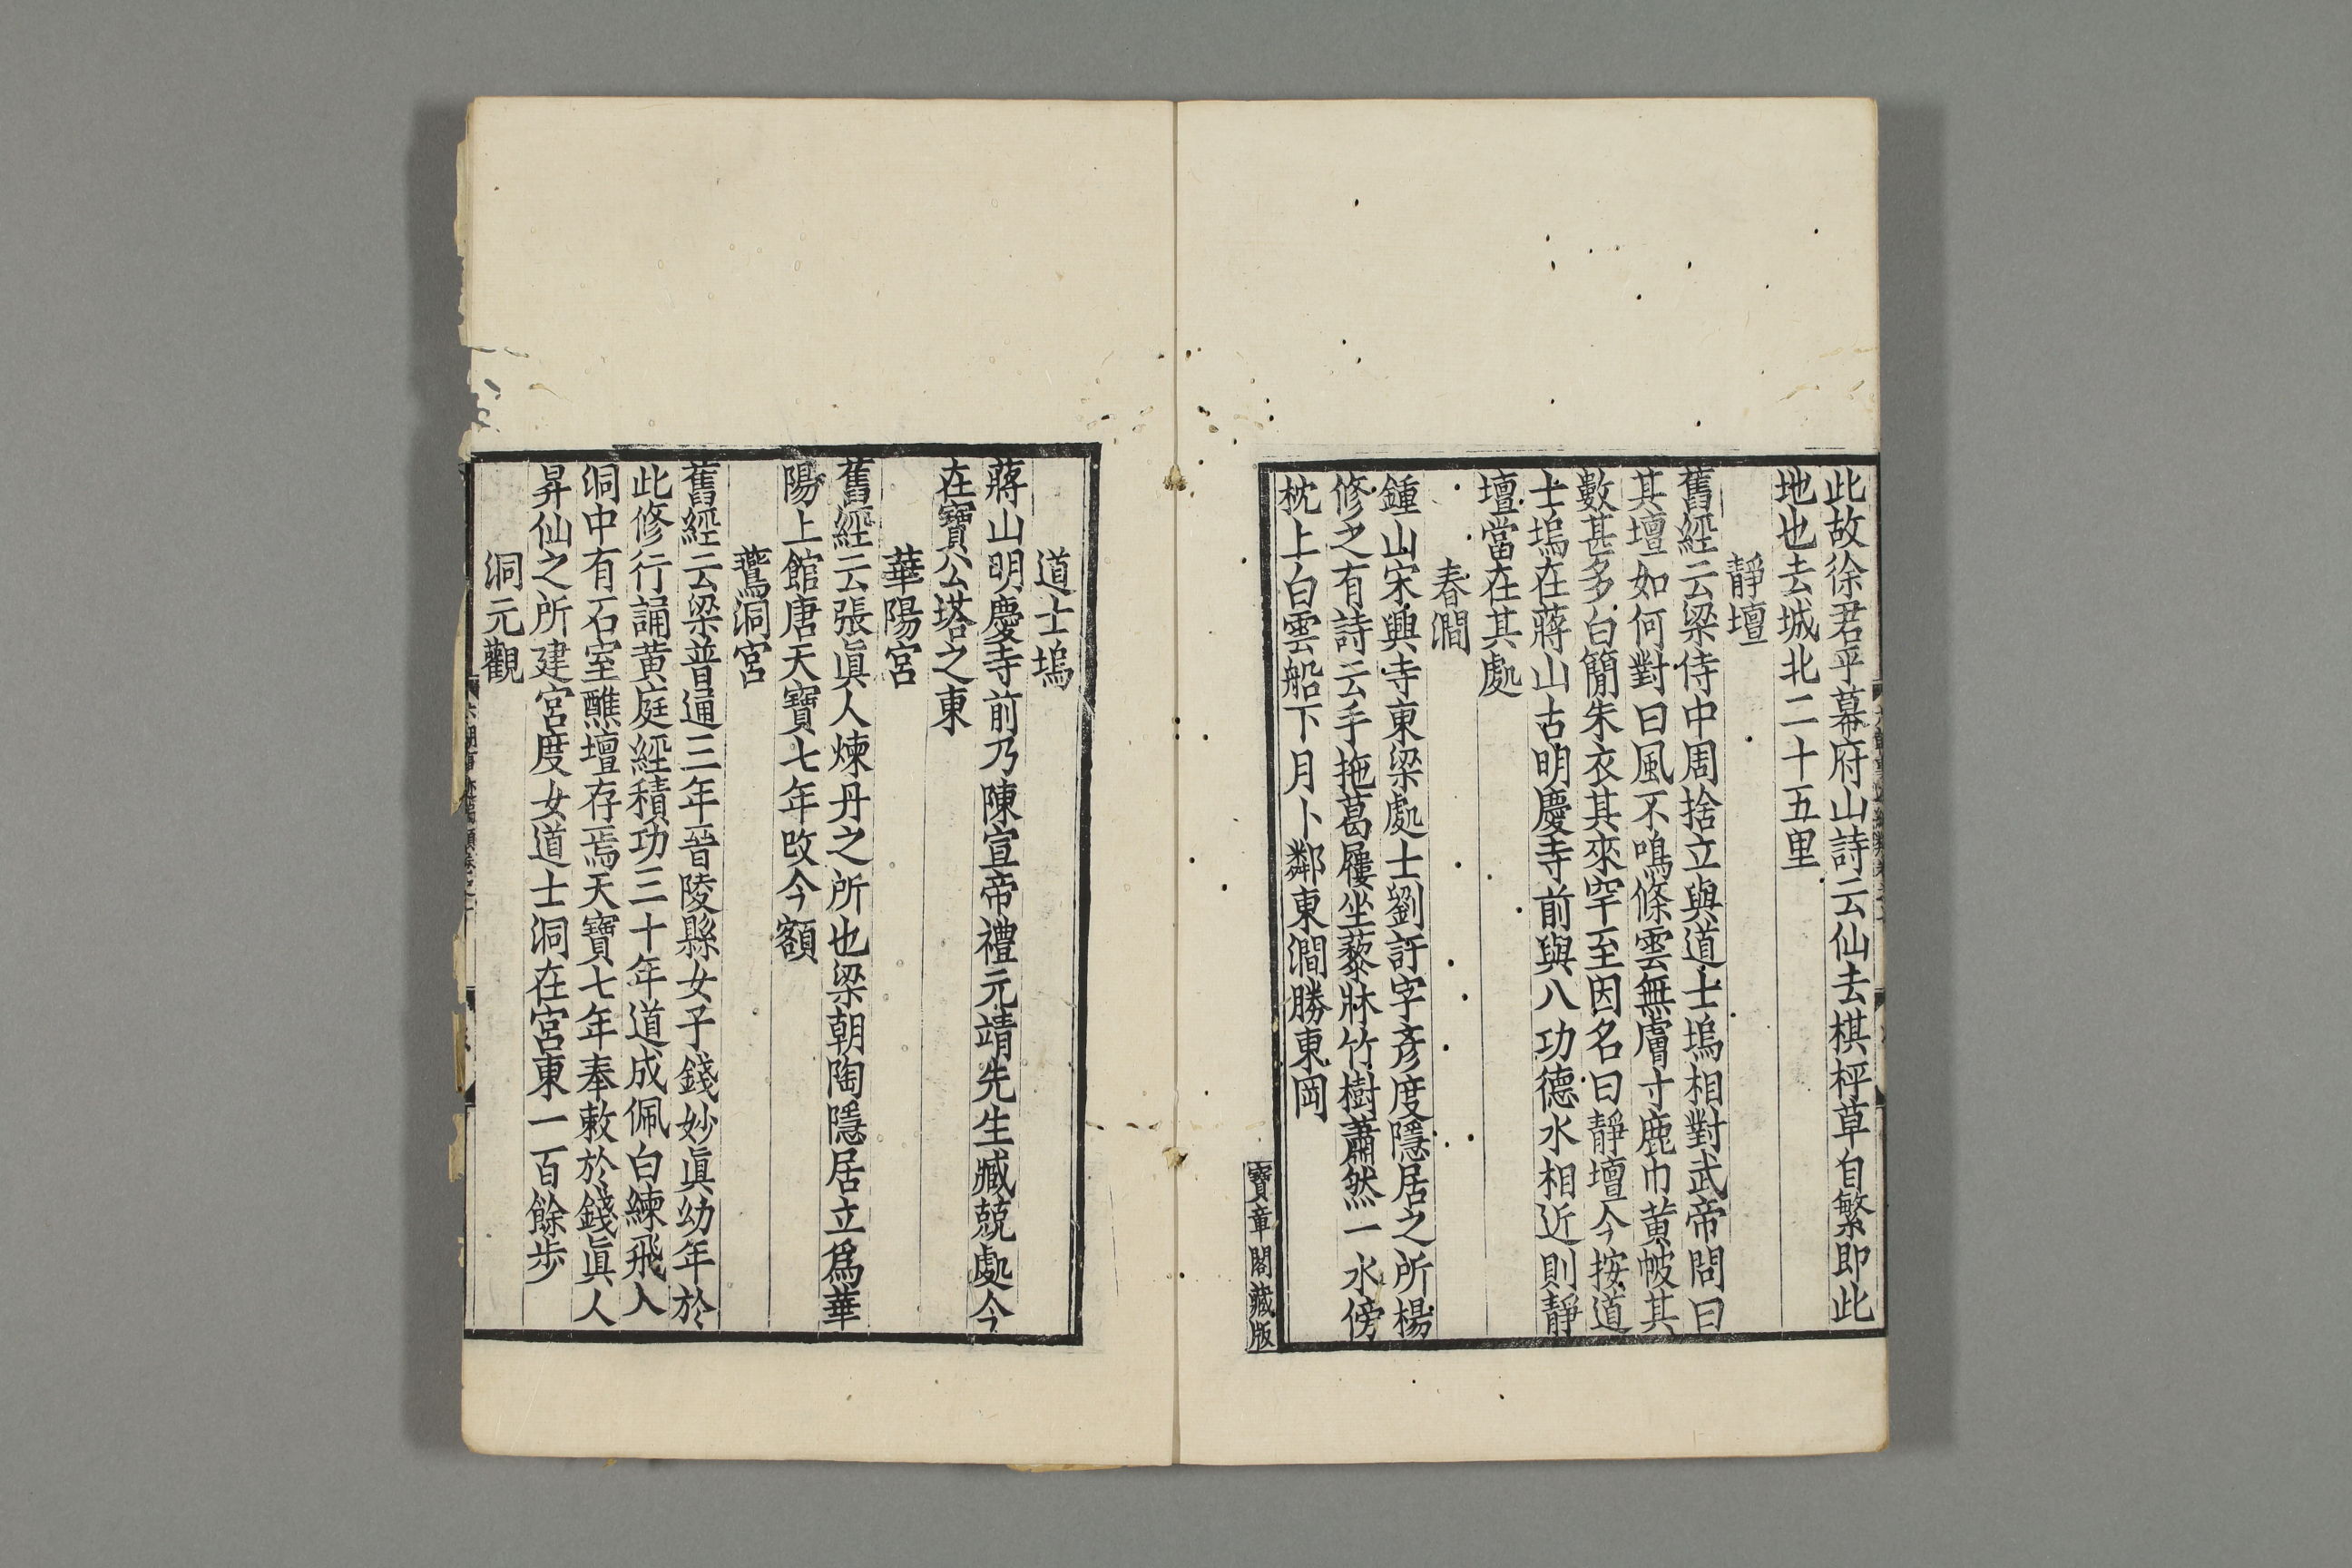 此故徐君平幕府山詩云仙去棋枰草自繁即此
地也去城北二十五里
靜壇
舊經云梁侍中周捨立與道士塢相對武帝問曰
其壇如何對曰風不鳴條雲無膚寸鹿巾黃帔其
數甚多白簡朱衣其來罕至因名曰靜壇今按道
士塢在蔣山古明慶寺前與八功德水相近則靜
壇當在其處
春澗
鍾山宋興寺東梁處士劉訏字彥度隱居之所楊
修之有詩云手拖葛屨坐藜牀竹樹蕭然一水傍
枕上白雲船下月卜鄰東澗勝東岡
寶章閣藏版
道士塢
蔣山明慶寺前乃陳宣帝禮元靖先生臧兢處今
在寶公塔之東
華陽宮
舊經云張眞人煉丹之所也梁朝陶隱居立爲華
陽上館唐天寶七年改今額
鷰洞宮
舊經云梁普通三年晉陵縣女子錢妙眞幼年於
此修行誦黃庭經積功三十年道成佩白練飛入
洞中有石室醮壇存焉天寶七年奉敕於錢眞人
昇仙之所建宮度女道士洞在宮東一百餘步
洞元觀